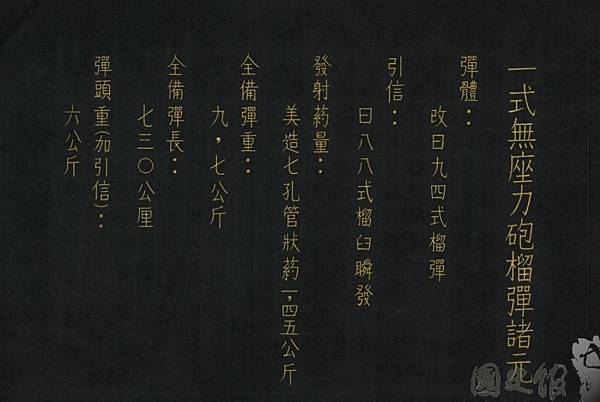 一式無座力砲榴彈諸元
彈體：
改日九四式榴彈
引信：
日八八式榴臼瞬發
發射葯量：
美造七孔管狀葯一,四五公斤
全備彈重：
九,七公斤
全備彈長：
七三〇公厘
彈頭重(加引信)：
六公斤